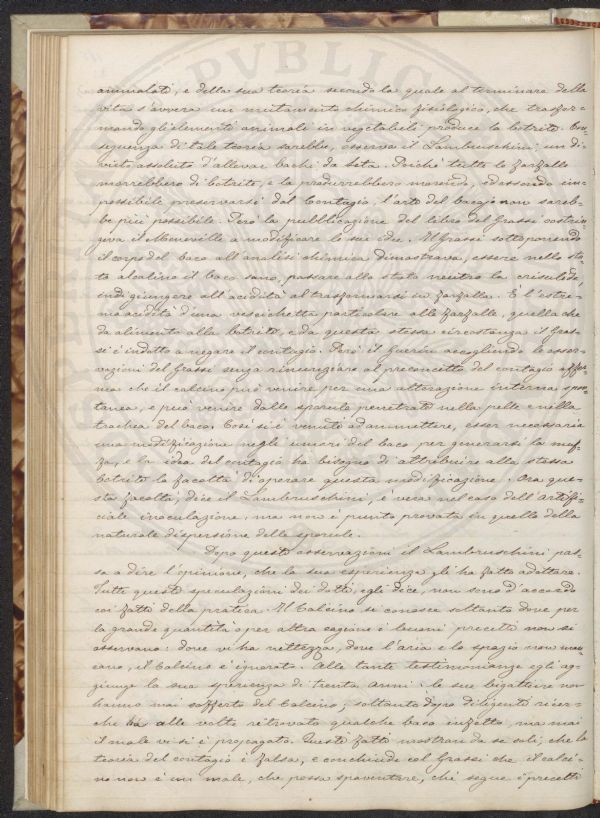 ammalati, e della sua teoria secondo la quale al terminare della
vita s'avvera un mutamento chimico fisiologico, che trasfor=
mando gli elementi animali in vegetabili produce la botrite. Con=
seguenza di tale teoria sarebbe, osserva il Lambruschini: un di=
vieto assoluto d'allevar bachi da seta. Poichè tutte le farfalle
morrebbero di botrite, e la produrrebbero morendo, ed essendo im=
possibile preservarsi dal Contagio, l'arte del bacajo non sareb=
be più possibile. Però la pubblicazione del libro del Grassi costrin=
geva il Meneville a modificare le sue idee. Il Grassi sottoponendo
il corpo del baco all'analisi chimica dimostrava, essere nello sta=
to alcalino il baco sano, passare allo stato neutro la crisalide,
indi giungere all'acidità al trasformarsi in farfalla. È l'estre=
ma acidità d'una vescichetta particolare alle farfalle, quella che
da alimento alla botrite, e da questa stessa circostanza il Gras=
si è indotto a negare il contagio. Però il Guerin accogliendo le osser=
vazioni del Grassi senza rinunziare al preconcetto del contagio affer=
ma che il calcino può venire per una alterazione interna spon=
tanea, e può venire dalle sporule penetrate nella pelle e nella
trachea del baco. Così si è venuto ad ammettere, esser necessaria
una modificazione negli umori del baco per generarsi la muf=
fa, e la idea del contagio ha bisogno di attribuire alla stessa
botrite la facoltà di operare questa modificazione. Ora que=
sta facoltà, dice il Lambruschini, è vera nel caso dell'artifi=
ciale inoculazione, ma non è punto provata in quello della
naturale dispersione delle sporule.
Dopo queste osservazioni il Lambruschini pas=
sa a dire l'opinione, che la sua esperienza gli ha fatto adottare.
Tutte queste speculazioni dei dotti, egli dice, non sono d'accordo
coi fatti della pratica. Il Calcino si conosce soltanto dove per
la grande quantità o per altra cagione i buoni precetti non si
osservano: dove vi ha nettezza, dove l'aria e lo spazio non man=
cano, il Calcino è ignorato. Alle tante testimonianze egli ag=
giunge la sua sperienza di trenta anni. le sue bigattiere non
hanno mai sofferto del Calcino; soltanto dopo diligenti ricer=
che ha alle volte ritrovato qualche baco infetto, ma mai
il male vi si è propagato. Questi fatti mostran da se soli; che la
teoria del contagio è falsa, e conchiude col Grassi che il calci=
no non è un male, che possa spaventare, chi segue i precetti